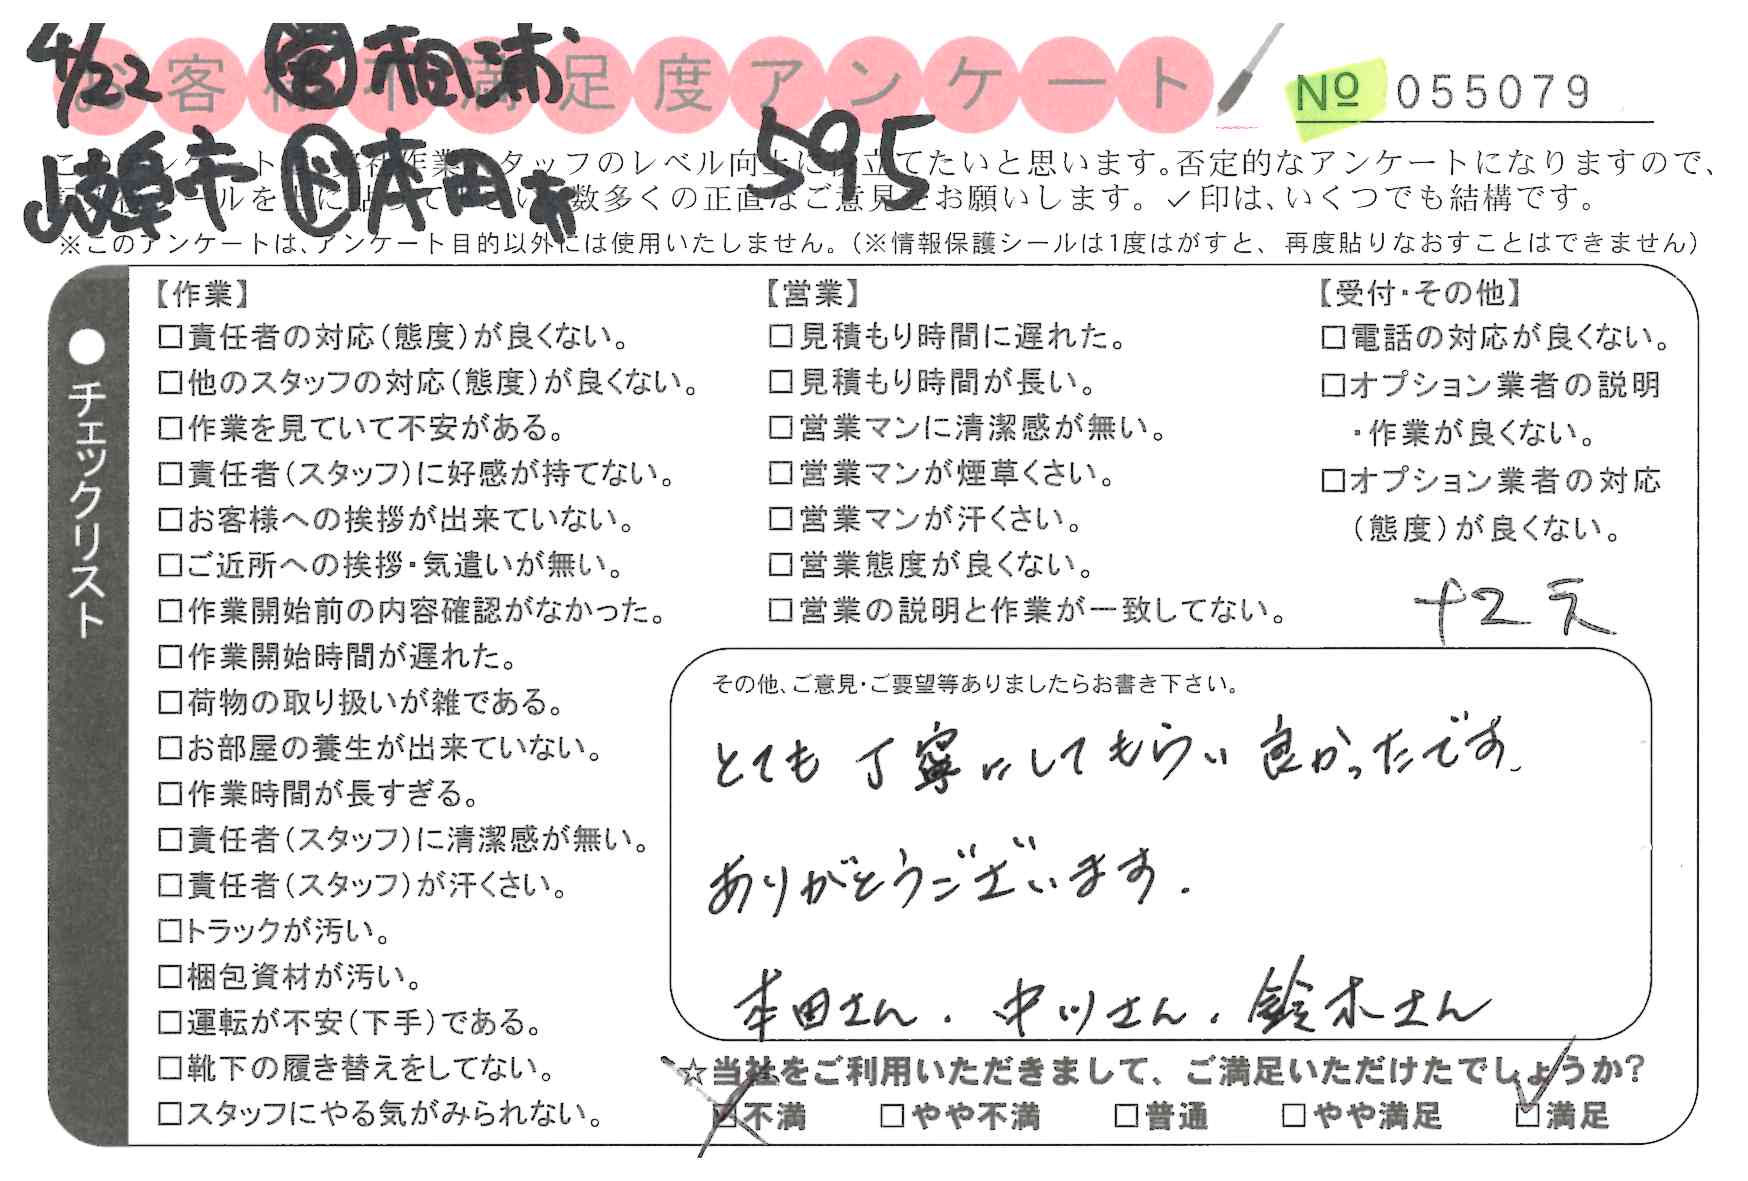 4/22 営 相浦
お客様不満足度アンケート
No 055079
岐阜市 ド 本田 595
このアンケートは、弊社作業スタッフのレベル向上に役立てたいと思います。否定的なアンケートになりますので、
シールを に貼って 数多くの正直なご意見をお願いします。✓印は、いくつでも結構です。
※このアンケートは、アンケート目的以外には使用いたしません。(※情報保護シールは1度はがすと、再度貼りなおすことはできません)
●チェックリスト
【作業】
□責任者の対応(態度)が良くない。
□他のスタッフの対応(態度)が良くない。
□作業を見ていて不安がある。
□責任者(スタッフ)に好感が持てない。
□お客様への挨拶が出来ていない。
□ご近所への挨拶・気遣いが無い。
□作業開始前の内容確認がなかった。
□作業開始時間が遅れた。
□荷物の取り扱いが雑である。
□お部屋の養生が出来ていない。
□作業時間が長すぎる。
□責任者(スタッフ)に清潔感が無い。
□責任者(スタッフ)が汗くさい。
□トラックが汚い。
□梱包資材が汚い。
□運転が不安(下手)である。
□靴下の履き替えをしてない。
□スタッフにやる気がみられない。
【営業】
□見積もり時間に遅れた。
□見積もり時間が長い。
□営業マンに清潔感が無い。
□営業マンが煙草くさい。
□営業マンが汗くさい。
□営業態度が良くない。
□営業の説明と作業が一致してない。
【受付・その他】
□電話の対応が良くない。
□オプション業者の説明
・作業が良くない。
□オプション業者の対応
(態度)が良くない。
その他、ご意見・ご要望等ありましたらお書き下さい。
とても丁寧にしてもらい良かったです。
ありがとうございます.
本田さん.中川さん.鈴木さん
☆当社をご利用いただきまして、ご満足いただけたでしょうか?
□不満 □やや不満 □普通 □やや満足 □満足